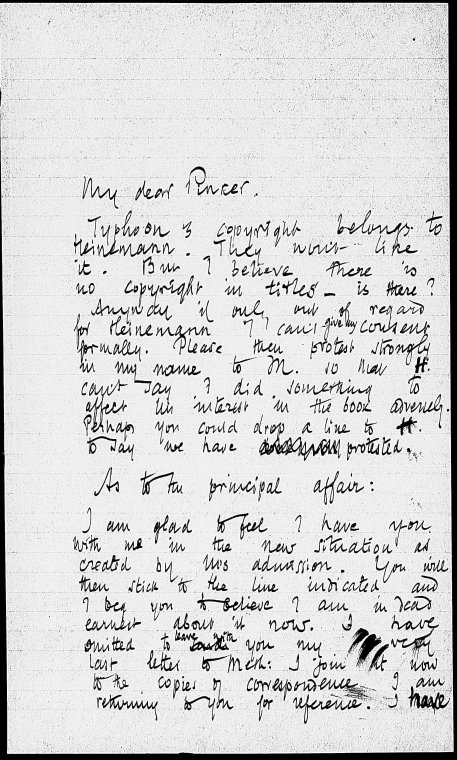 My dear Pinker.
Typhoon's copyright belongs to
Heinemann. They won't like
it. But I believe there is
no copyright in titles – is there?
Anyway if only out of regard
for Heinemann I can't give my consent
formally. Please then protest strongly
in my name to M. so that H.
can't say I did something to
affect his interest in the book adversely.
Perhaps you could drop a line to H.
to say we have protested.
As to the principal affair:
I am glad to feel I have you
with me in the new situation as
created by his admission. You will
then stick to the line indicated and
I beg you to believe I am in dead
earnest about it now. I have
omitted to leave with you my very
last letter to Meth: I join it now
to the copies of correspondence I am
returning to you for reference. I have